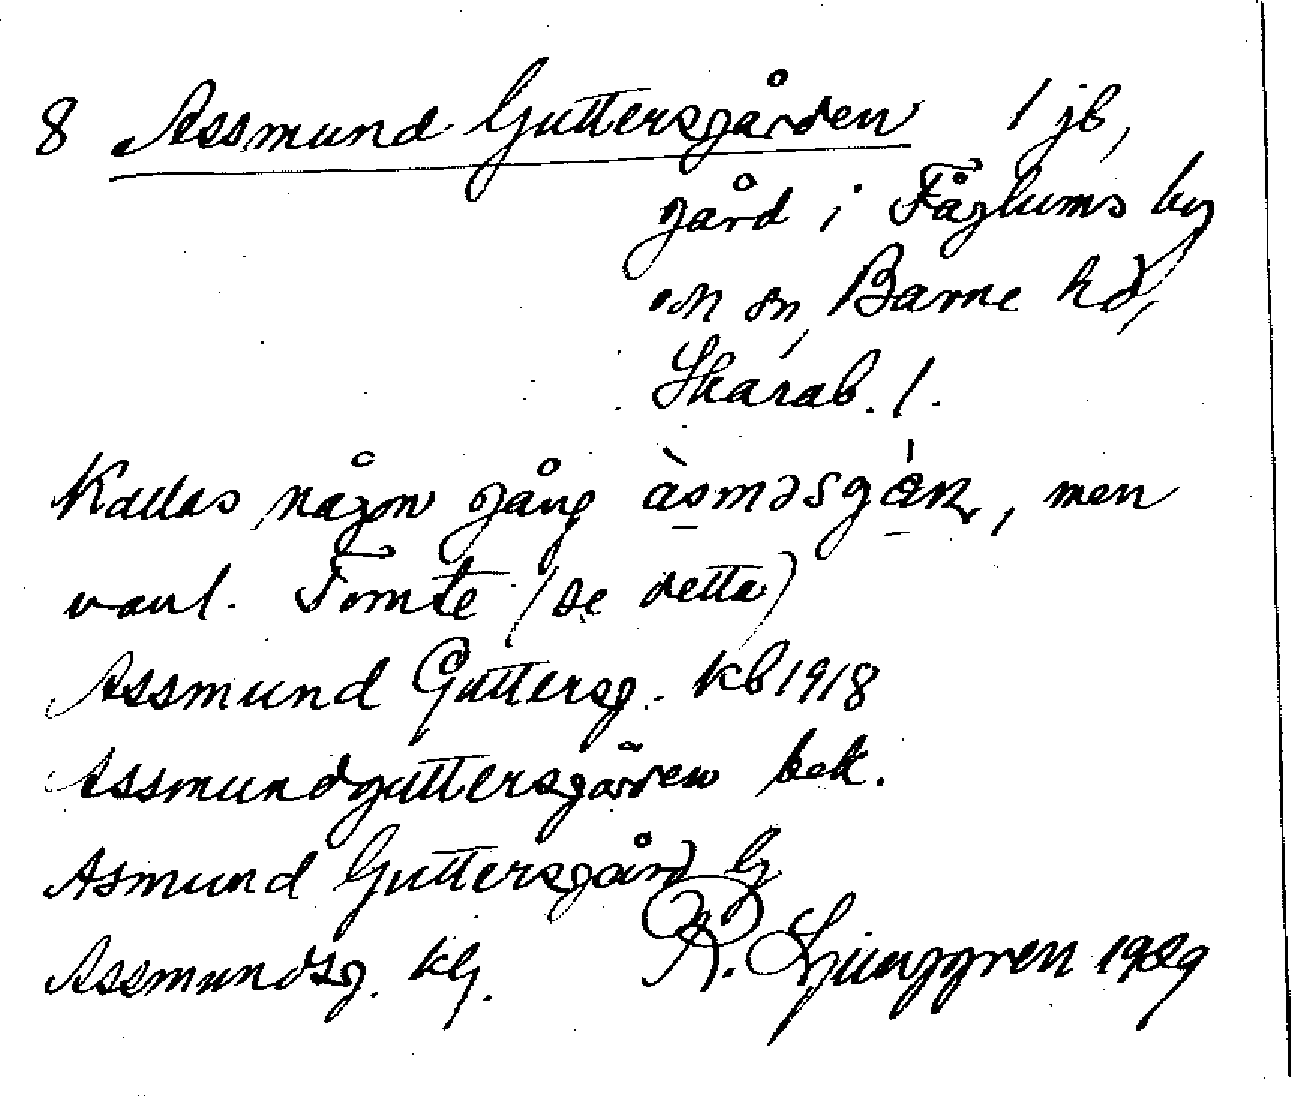 8 Assmund Guttersgården 1 jb,
gård i Fåglums by
och sn, Barne hd,
Skarab. l.
Kallas någon gång , men
vanl. Tomte (se detta)
Assmund Guttersg. kb 1918
Assmundguttersgården bok.
Asmund Guttersgård G
Assmundsg. kg. R. Ljunggren 1929